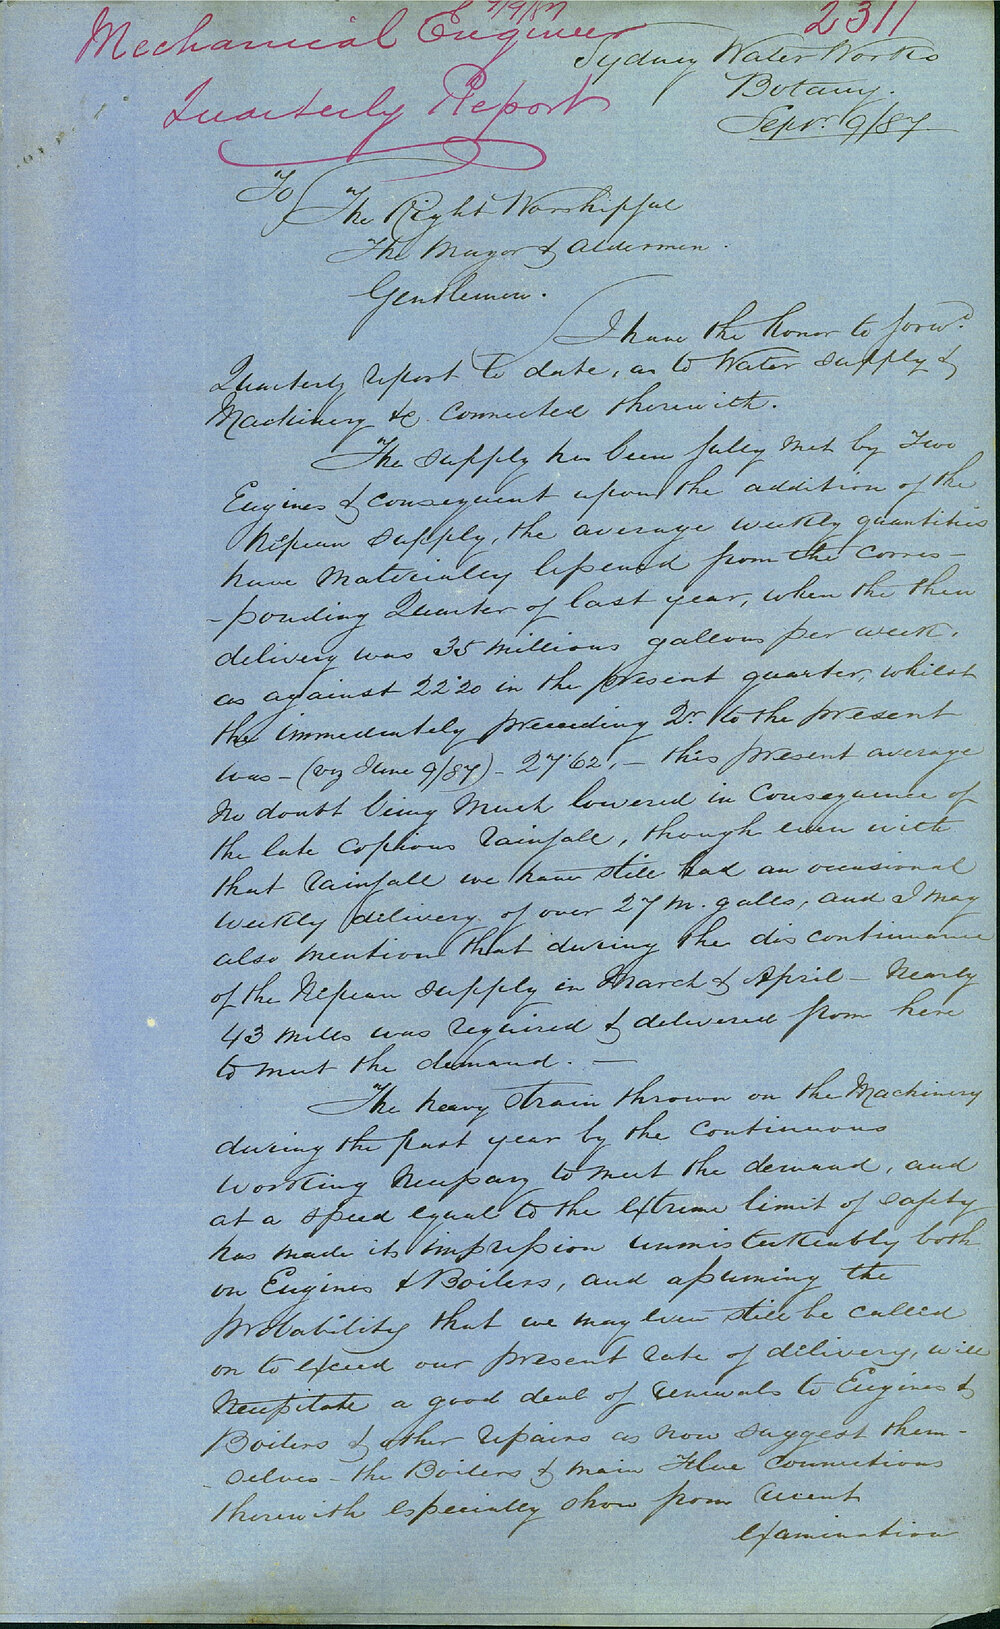 9/9/87
2311
Mechanical Engineer
Quarterly Report
Sydney Water Works
Botany.
Sepr. 9/87
To
The Right Worshipful
The Mayor & Aldermen.
Gentlemen.
I have the honor to forwd.
Quarterly report to date, as to Water supply &
Machinery &c. connected therewith.
The supply has been fully met by Two
Engines & consequent upon the addition of the
Nepean supply, the average weekly quantities
have materially lessened from the corres-
-ponding Quarter of last year, when the then
delivery was 35 millions gallons per week,
as against 22.20 in the present quarter, whilst
the immediately preceeding Qr. to the present
was - (viz June 9/87) - 27.62, - this present average
no doubt being much lowered in consequence of
the late copious rainfall, though even with
that rainfall we have still had an occasional
weekly delivery of over 27 m. galls, and I may
also mention that during the discontinuance
of the Nepean supply in March & April - nearly
43 mills was required & delivered from here
to meet the demand. -
The heavy strain thrown on the Machinery
during the past year by the continuous
working necessary to meet the demand, and
at a speed equal to the extreme limit of safety
has made its impression unmistakeably both
on Engines & Boilers, and assuming the
probability that we may even still be called
on to exceed our present rate of delivery, will
necessitate a good deal of renewals to Engines &
Boilers & other repairs as now suggest them-
-selves - the Boilers & main Flue connections
therewith especially show from recent
examination